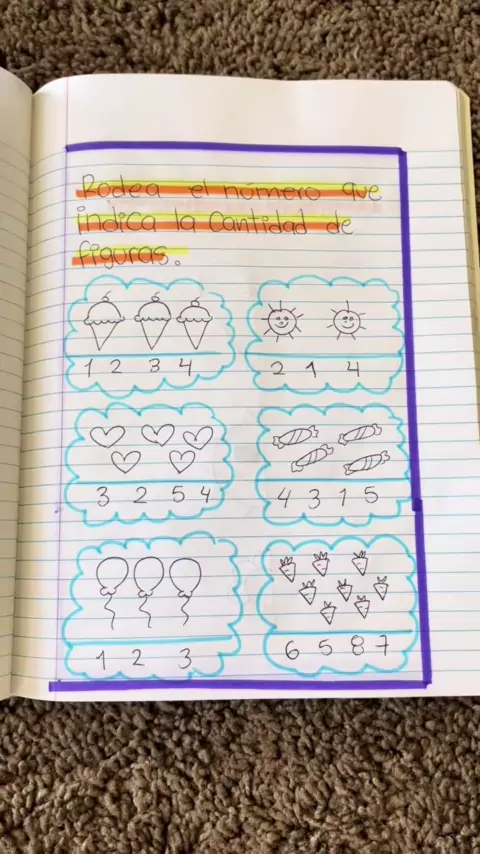 Rodea el número que
indica la cantidad de
figuras.
1 2 3 4
2 1 4
3 2 5 4
4 3 1 5
1 2 3
6 5 8 7